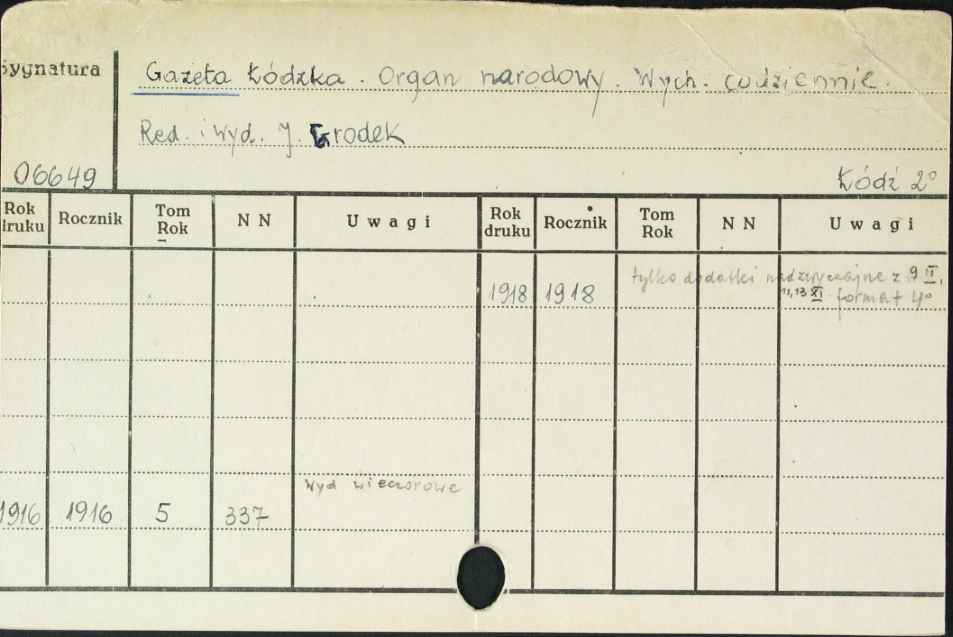 Sygnatura
Gazeta Łódzka. Organ narodowy. Wych. codziennie.
Red. i wyd. J. Grodek
06649
Łódź 2°
Rok druku Rocznik Tom Rok NN Uwagi Rok druku Rocznik Tom Rok NN Uwagi
tylko dodatki nadzwyczajne z 9 II,
1918 1918 11, 13 XI format 4°
Wyd wieczorowe
1916 1916 5 337